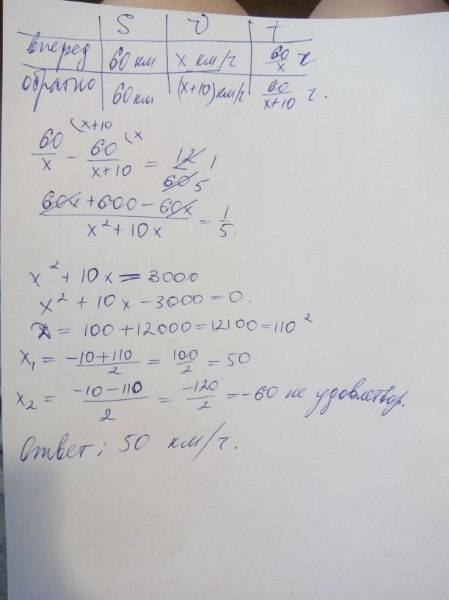 S υ t
вперед 60 км x км/ч 60/x ч
обратно 60 км (x+10) км/ч 60/(x+10) ч.
60/x (x+10 - 60/(x+10) (x = 12/60 1/5
(60x + 600 - 60x)/(x² + 10x) = 1/5.
x² + 10x = 3000
x² + 10x - 3000 = 0.
D = 100 + 12000 = 12100 = 110²
x₁ = (-10 + 110)/2 = 100/2 = 50
x₂ = (-10 - 110)/2 = -120/2 = -60 не удовлетвор.
Ответ: 50 км/ч.